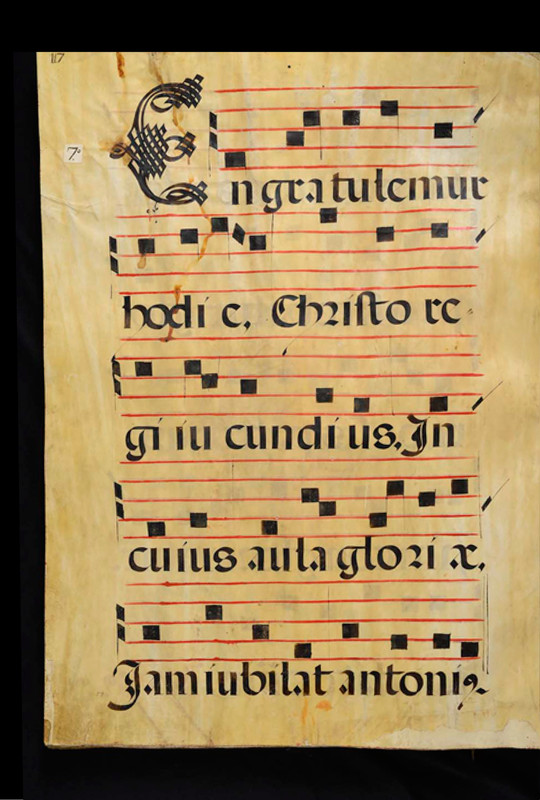 117
7.
En gra tulemur
hodi e, Christo re
gi iu cundi us, In
cuius aula glori æ,
Jam iubilat antoniꝰ